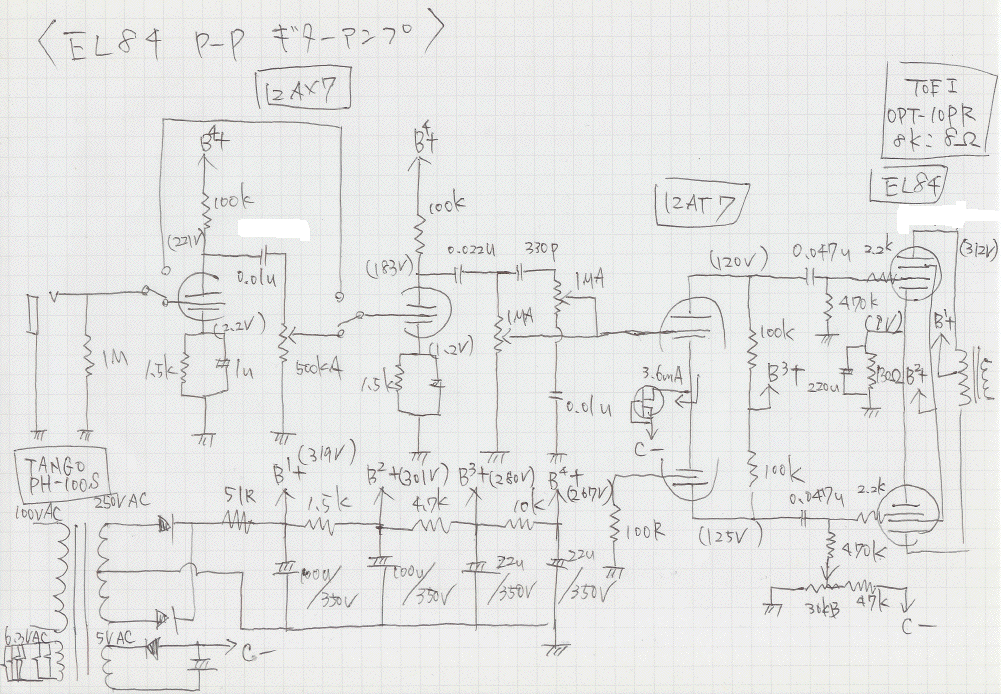 〈EL84 P-P ギターアンプ〉
12AX7
TOEI
OPT-10PR
8k:8Ω
EL84
12AT7
B4+
100k
(221V)
0.01u
(2.2V)
1.5k
1u
1M
500kA
B4+
100k
(183V)
0.022u
330p
1MA
1MA
(1.2V)
1.5k
0.01u
(120V)
0.047u
2.2k
(312V)
470k
(9V)
100k
B3+
220u
130Ω
B2+
B1+
3.6mA
C-
100k
0.047u
2.2k
(125V)
100R
470k
30kB
47k
C-
TANGO
PH-100S
100VAC
250VAC
51R
B1+
(319V)
1.5k
B2+(301V)
4.7k
B3+(280V)
10k
B4+
(267V)
100u/350V
100u/350V
22u/350V
22u/350V
6.3VAC
5VAC
C-